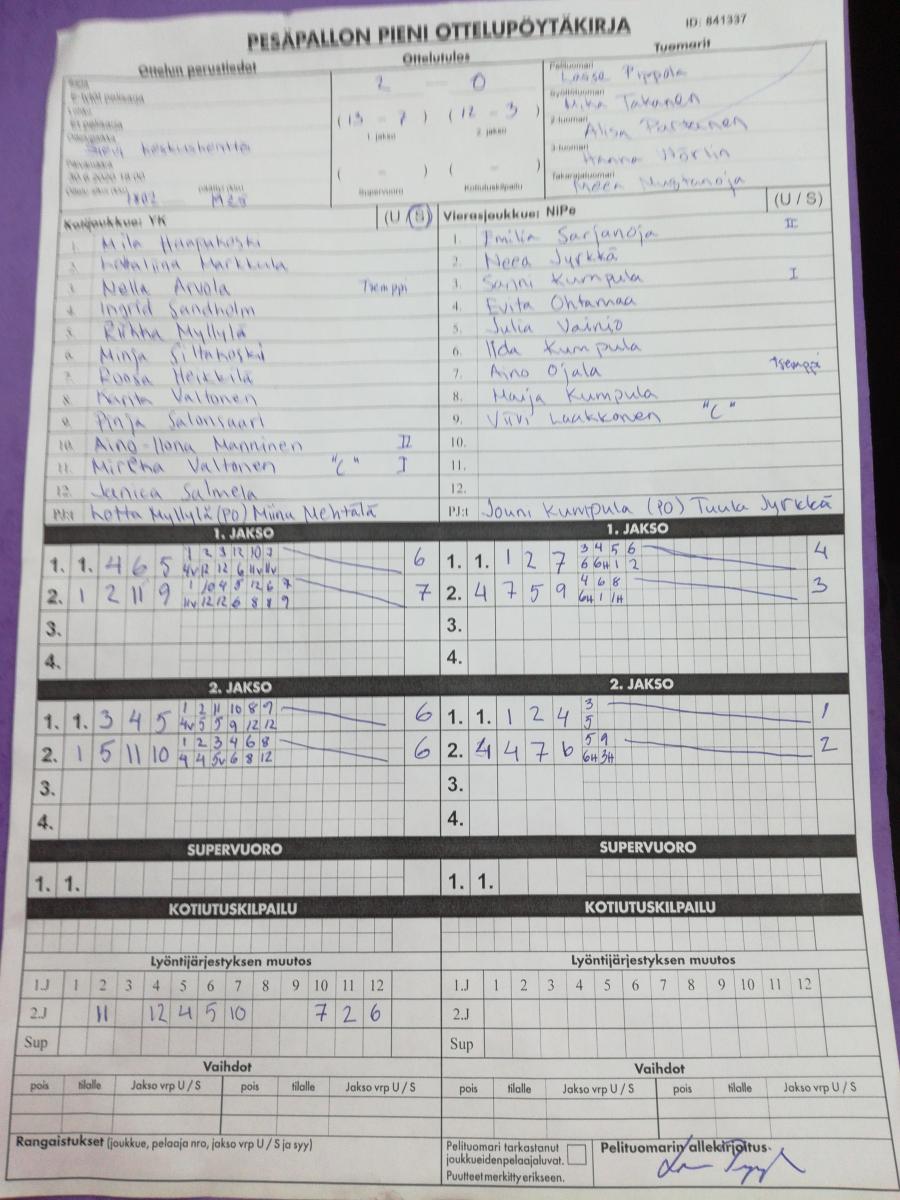 PESÄPALLON PIENI OTTELUPÖYTÄKIRJA ID: 841337
Ottelun perustiedot Ottelutulos Tuomarit
2 - 0 Pelituomari Lasse Pippola
(13 - 7) (12 - 3) Syöttötuomari Mika Takanen
1. jakso 2. jakso 2-tuomari Alisa
Keskuskenttä 3-tuomari Hanna
( - ) ( - ) Takarajatuomari
Supervuoro Kotiutuskilpailu
Kotijoukkue: YK (U / S) Vierasjoukkue: NiPe (U / S)
1. Mila Haapakoski 1. Emilia Sarjanoja II
2. Markkula 2. Neea Jyrkkä
3. Nella Arvola Tsemppi 3. Sanni Kumpula I
4. Ingrid Sandholm 4. Evita Ohtamaa
5. Riikka Myllylä 5. Julia Vainio
6. Minja Siltakoski 6. Iida Kumpula
7. Roosa Heikkilä 7. Aino Ojala Tsemppi
8. Karita Valtonen 8. Maija Kumpula
9. Pinja Salonsaari 9. Viivi Laakkonen "C"
10. Aino-Ilona Manninen II 10.
11. Mirkha Valtonen "C" I 11.
12. Janica Salmela 12.
PJ:t Lotta Myllylä (PO) Miina Mehtälä PJ:t Jouni Kumpula (PO) Tuula Jyrkkä
1. JAKSO 1. JAKSO
1 2 3 12 10 7 3 4 5 6
1. 1. 4 6 5 4v 12 12 6 11v 11v 6 1. 1. 1 2 7 6 6H 1 2 4
1 10 4 5 12 6 7 4 6 8
2. 1 2 11 9 11v 12 12 6 8 8 9 7 2. 4 7 5 9 6H 1 1H 3
3. 3.
4. 4.
2. JAKSO 2. JAKSO
1 2 11 10 8 9 3
1. 1. 3 4 5 4v 5 5 9 12 12 6 1. 1. 1 2 4 5 1
1 2 3 4 6 8 5 9
2. 1 5 11 10 4 4 5v 6 8 12 6 2. 4 4 7 6 6H 3H 2
3. 3.
4. 4.
SUPERVUORO SUPERVUORO
1. 1. 1. 1.
KOTIUTUSKILPAILU KOTIUTUSKILPAILU
Lyöntijärjestyksen muutos Lyöntijärjestyksen muutos
1.J 1 2 3 4 5 6 7 8 9 10 11 12 1.J 1 2 3 4 5 6 7 8 9 10 11 12
2.J 11 12 4 5 10 7 2 6 2.J
Sup Sup
Vaihdot Vaihdot
pois tilalle Jakso vrp U / S pois tilalle Jakso vrp U / S pois tilalle Jakso vrp U / S pois tilalle Jakso vrp U / S
Rangaistukset (joukkue, pelaaja nro, jakso vrp U / S ja syy) Pelituomari tarkastanut Pelituomarin allekirjoitus
joukkueidenpelaajaluvat.
Puutteet merkitty erikseen.